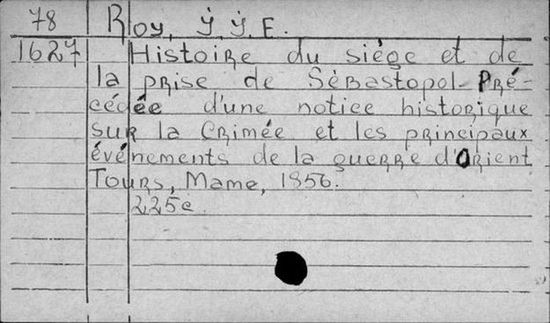 78 Roy, J. J. E.
1627 Histoire du siège et de
la prise de Sébastopol. Pré-
cédée d'une notice historique
sur la Crimée et les principaux
événements de la guerre d'Orient
Tours, Mame, 1856.
225c.